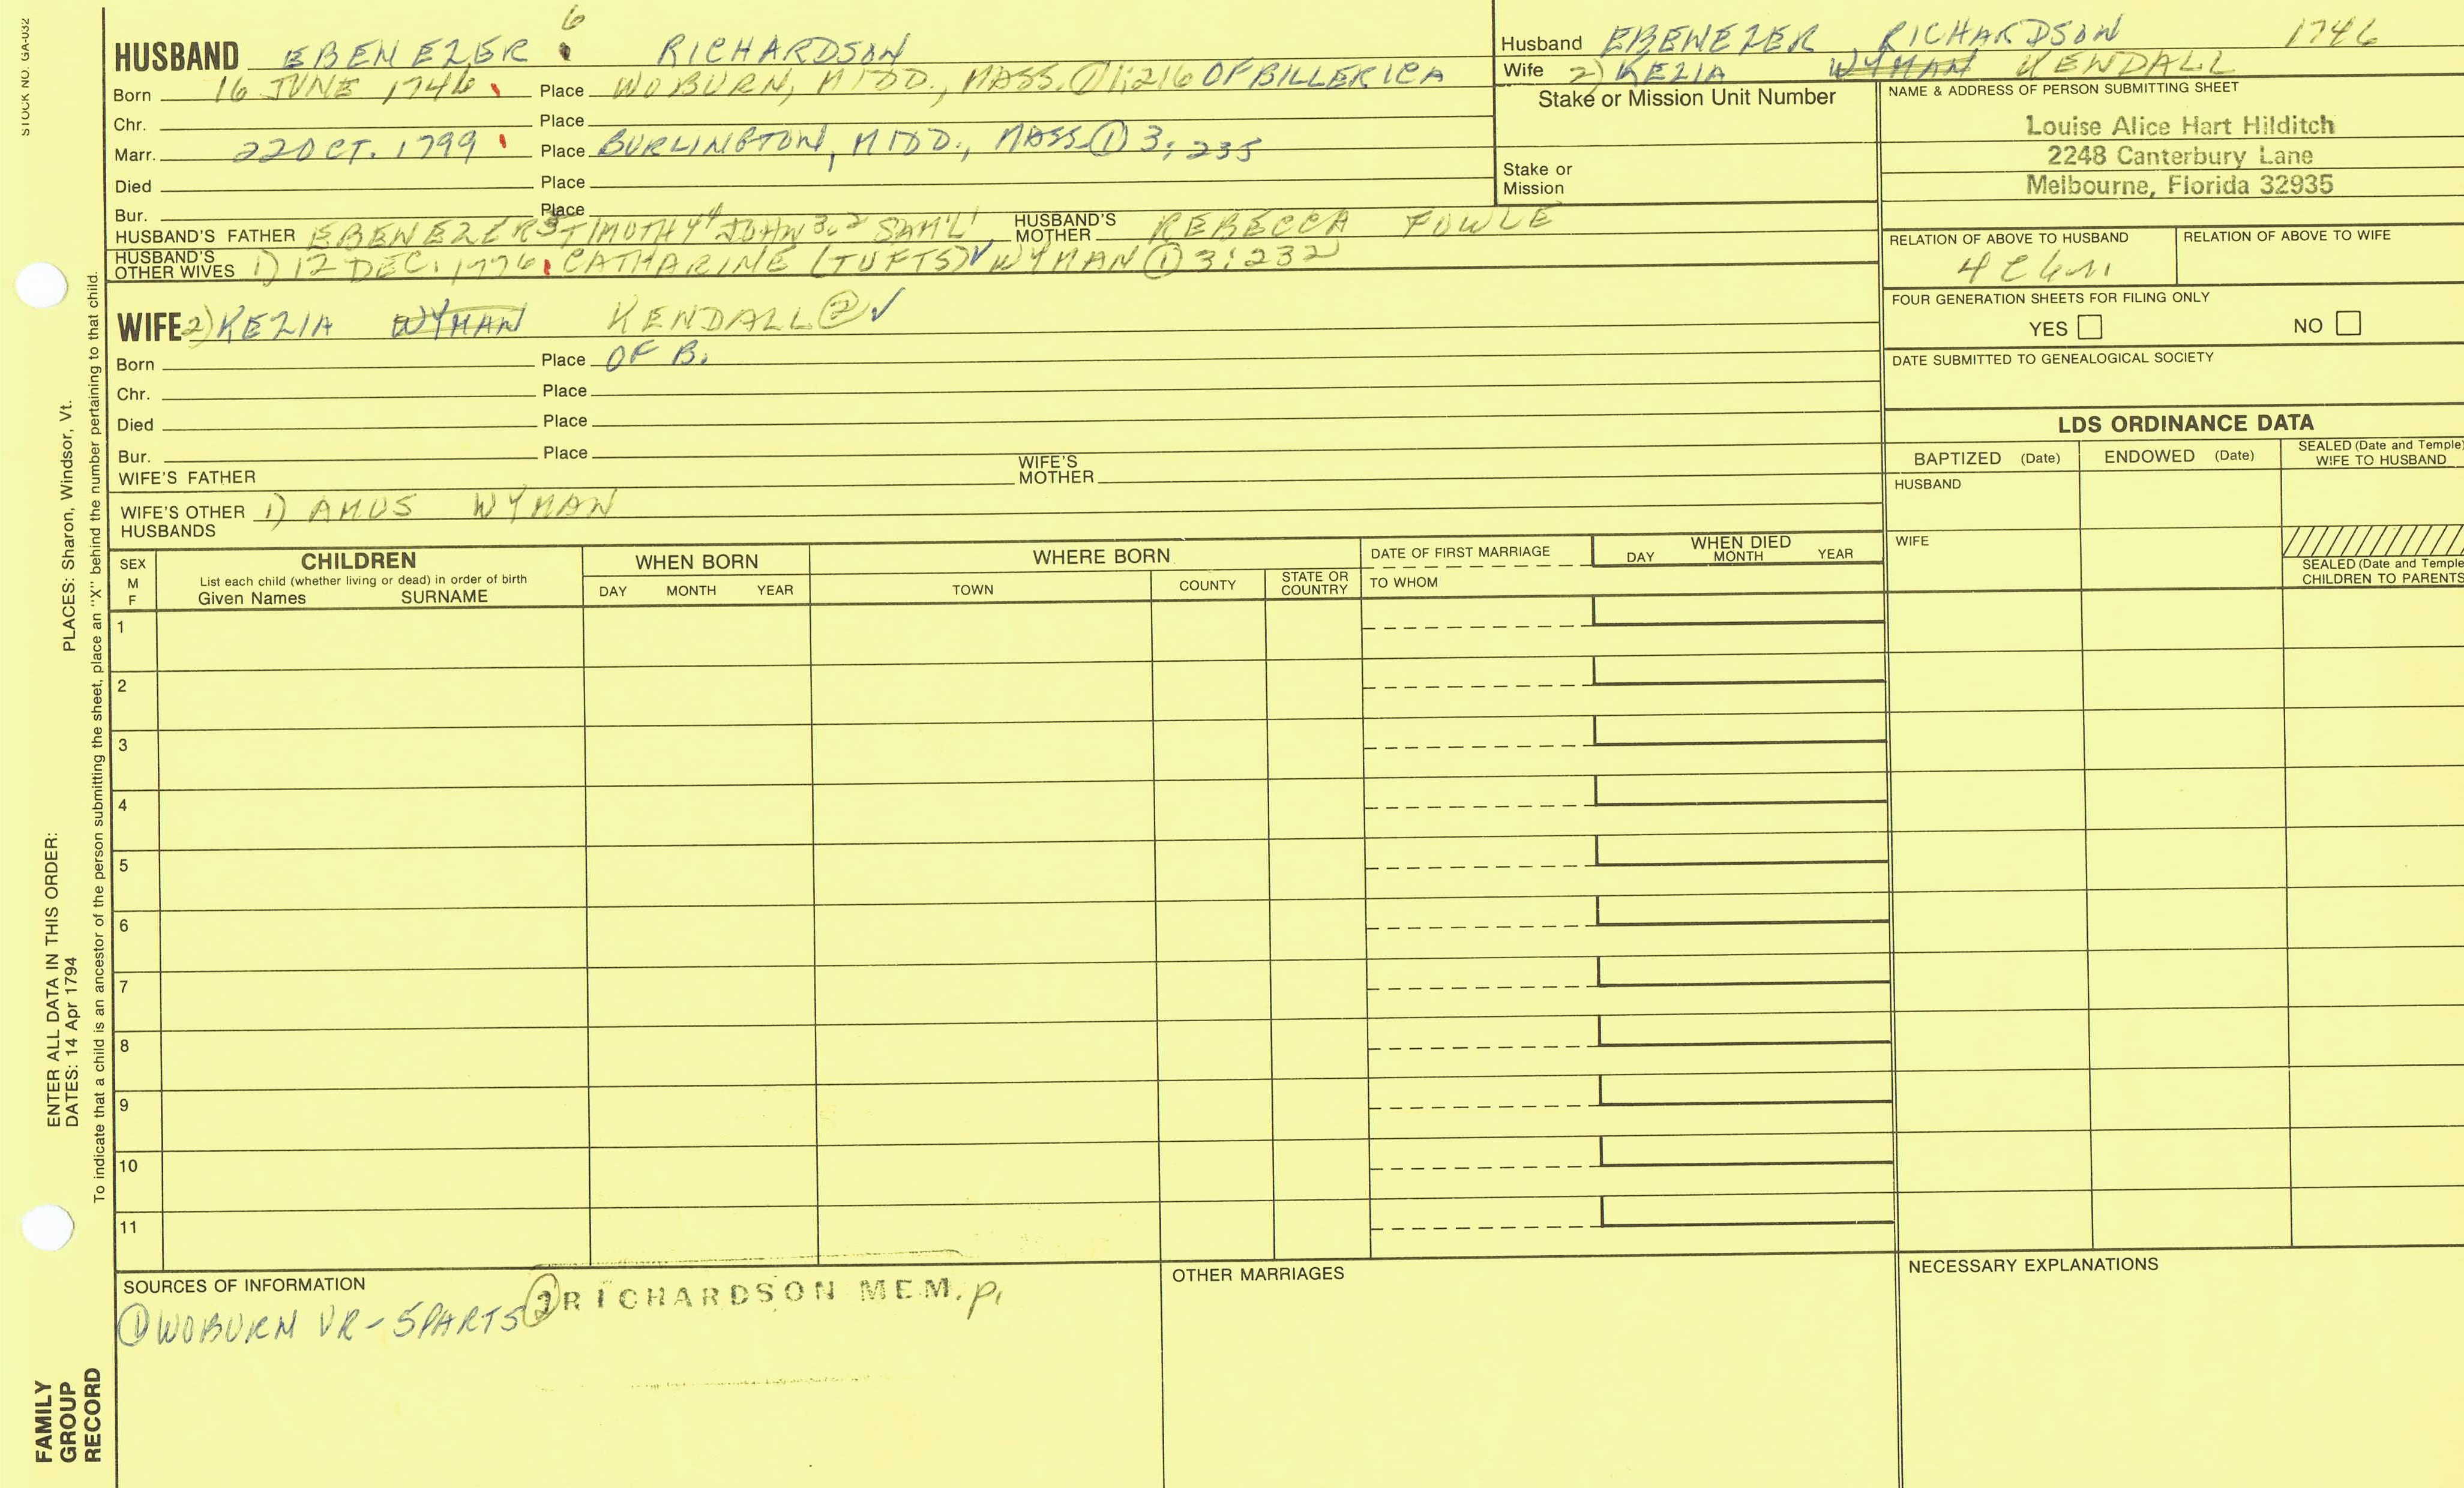 STOCK NO. GA-032
HUSBAND EBENEZER 6 RICHARDSON
Born 16 JUNE 1746 Place WOBURN, MIDD., MASS. ① 1:216 OF BILLERICA
Chr. Place
Marr. 22 OCT. 1799 Place BURLINGTON, MIDD., MASS ① 3:235
Died Place
Bur. Place
HUSBAND'S FATHER EBENEZER5 TIMOTHY4 JOHN3,2 SAM'L1 HUSBAND'S MOTHER REBECCA FOWLE
HUSBAND'S OTHER WIVES 1) 12 DEC. 1776 CATHARINE (TUFTS)✓ WYMAN ① 3:232
WIFE 2) KEZIA WYMAN KENDALL ② ✓
Born Place OF B.
Chr. Place
Died Place
Bur. Place
WIFE'S FATHER WIFE'S MOTHER
WIFE'S OTHER HUSBANDS 1) AMOS WYMAN
Husband EBENEZER RICHARDSON 1746
Wife 2) KEZIA WYMAN KENDALL
Stake or Mission Unit Number
Stake or Mission
NAME & ADDRESS OF PERSON SUBMITTING SHEET
Louise Alice Hart Hilditch
2248 Canterbury Lane
Melbourne, Florida 32935
RELATION OF ABOVE TO HUSBAND RELATION OF ABOVE TO WIFE
FOUR GENERATION SHEETS FOR FILING ONLY
YES NO
DATE SUBMITTED TO GENEALOGICAL SOCIETY
LDS ORDINANCE DATA
BAPTIZED (Date) ENDOWED (Date) SEALED (Date and Temple) WIFE TO HUSBAND
HUSBAND
WIFE
SEALED (Date and Temple) CHILDREN TO PARENTS
SEX M F
CHILDREN
List each child (whether living or dead) in order of birth
Given Names SURNAME
WHEN BORN
DAY MONTH YEAR
WHERE BORN
TOWN COUNTY STATE OR COUNTRY
DATE OF FIRST MARRIAGE
TO WHOM
WHEN DIED
DAY MONTH YEAR
1
2
3
4
5
6
7
8
9
10
11
SOURCES OF INFORMATION
① WOBURN VR - 5 PARTS ② RICHARDSON MEM. p.
OTHER MARRIAGES
NECESSARY EXPLANATIONS
FAMILY GROUP RECORD
ENTER ALL DATA IN THIS ORDER:
DATES: 14 Apr 1794 PLACES: Sharon, Windsor, Vt.
To indicate that a child is an ancestor of the person submitting the sheet, place an "X" behind the number pertaining to that child.